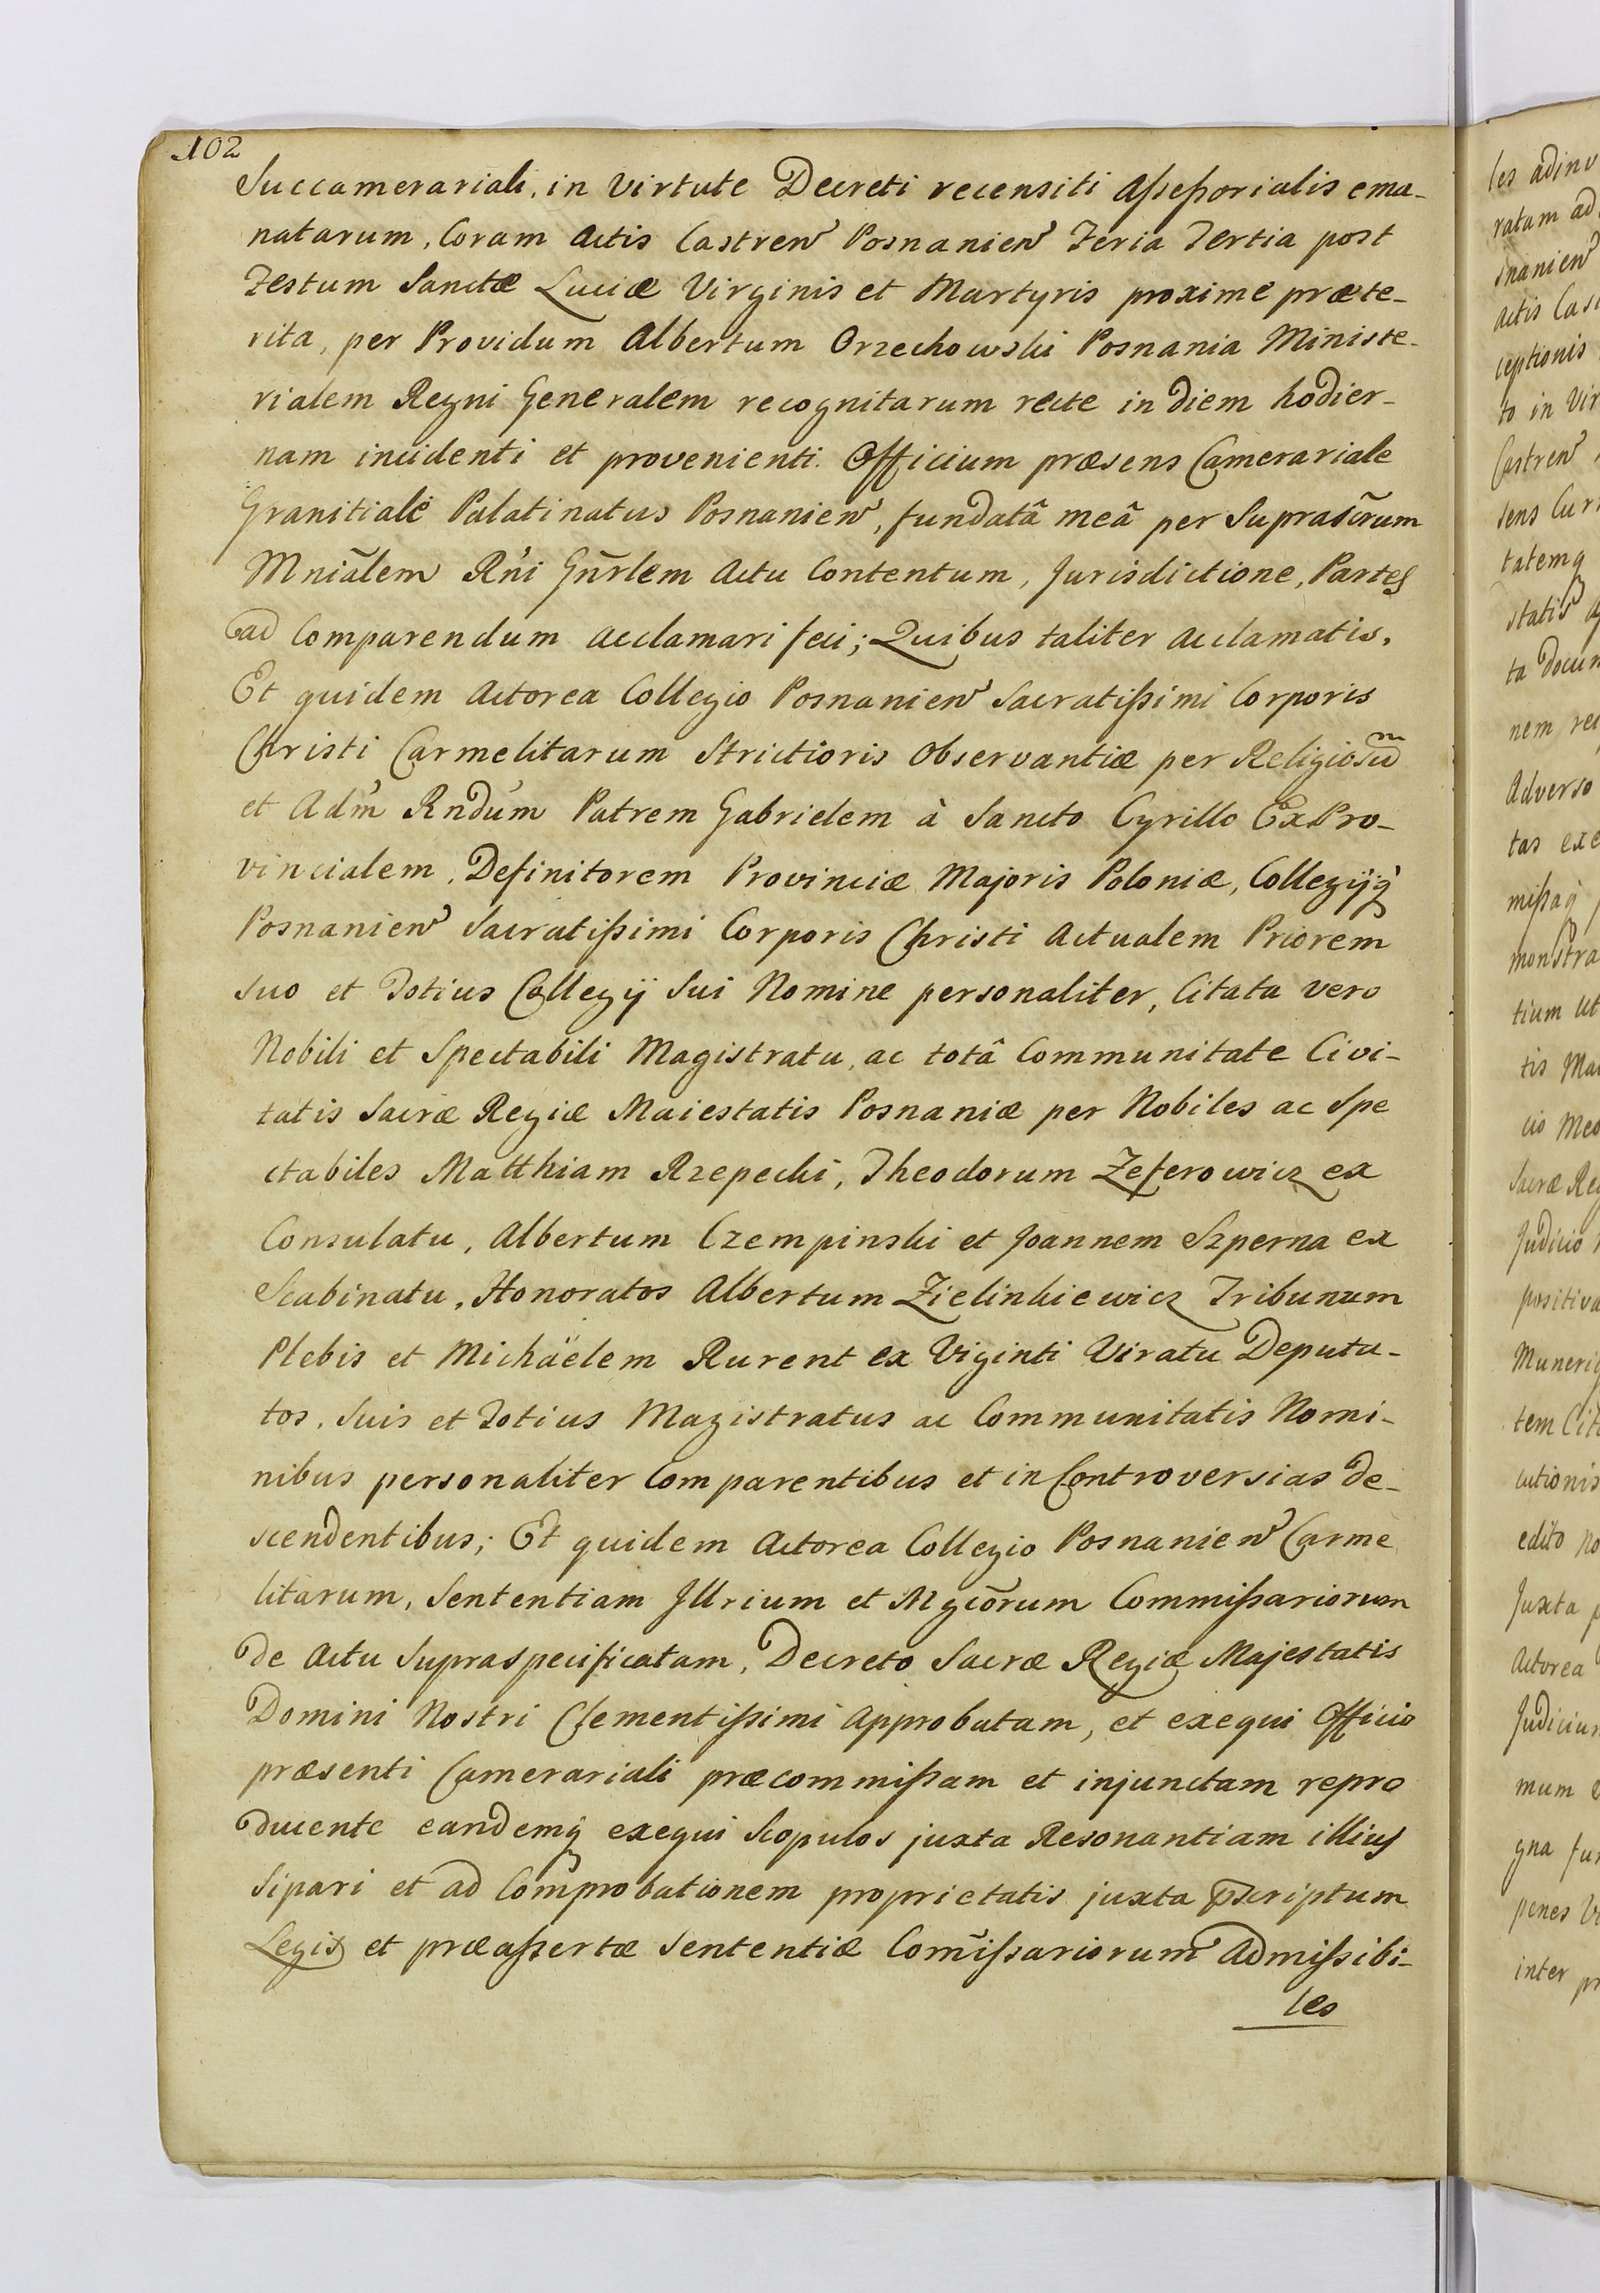 102
Succamerariali, in virtute Decreti recensiti Aſseſsorialis ema-
natarum, Coram Actis Castren Posnanien Feria Tertia post
Festum Sanctæ Luciæ Virginis et Martyris proxime præte-
rita, per Providum Albertum Orzechowski Posnania Ministe-
rialem Regni Generalem recognitarum recte in diem hodier-
nam incidenti et provenienti. Officium præsens Camerariale
Granitiale Palatinatus Posnanien, fundatâ meâ per Suprascr̃um
Mniãlem Rni Gñrlem Actu Contentum, Jurisdictione, Partes
ad Comparendum acclamari feci; Quibus taliter acclamatis,
Et quidem Actorea Collegio Posnanien Sacratiſsimi Corporis
Christi Carmelitarum Strictioris Observantiæ per Religiosum
et Adm Rndum Patrem Gabrielem à Sancto Cyrillo ExPro-
vincialem, Definitorem Provinciæ Majoris Poloniæ, Collegijq̃
Posnanien Sacratiſsimi Corporis Christi Actualem Priorem
suo et Totius Collegij Sui Nomine personaliter, Citata vero
Nobili et Spectabili Magistratu, ac totâ Communitate Civi-
tatis Sacræ Regiæ Maiestatis Posnaniæ per Nobiles ac Spe
ctabiles Matthiam Rzepecki, Theodorum Zeferowicz ex
Consulatu, Albertum Czempinski et Joannem Szperna ex
Scabinatu, Honoratos Albertum Zielinkiewicz Tribunum
Plebis et Michäelem Rurent ex Viginti Viratu Deputa-
tos, Suis et Totius Magistratus ac Communitatis Nomi-
nibus personaliter Comparentibus et in Controversias de-
scendentibus; Et quidem Actorea Collegio Posnanien Carme
litarum, Sententiam Jllrium et Mgcõrum Commiſsariorum
de Actu Supraspecificatam, Decreto Sacræ Regiæ Majestatis
Domini Nostri Clementiſsimi Approbatam, et exequi Officio
præsenti Camerariali præcommiſsam et injunctam repro
ducente eandemq̃ exequi Scopulos juxta Resonantiam illius
Sipari et ad Com̃probationem proprietatis juxta p̃scriptum
Legis et præaſsertæ Sententiæ Com̃iſsariorum Admiſsibi-
les